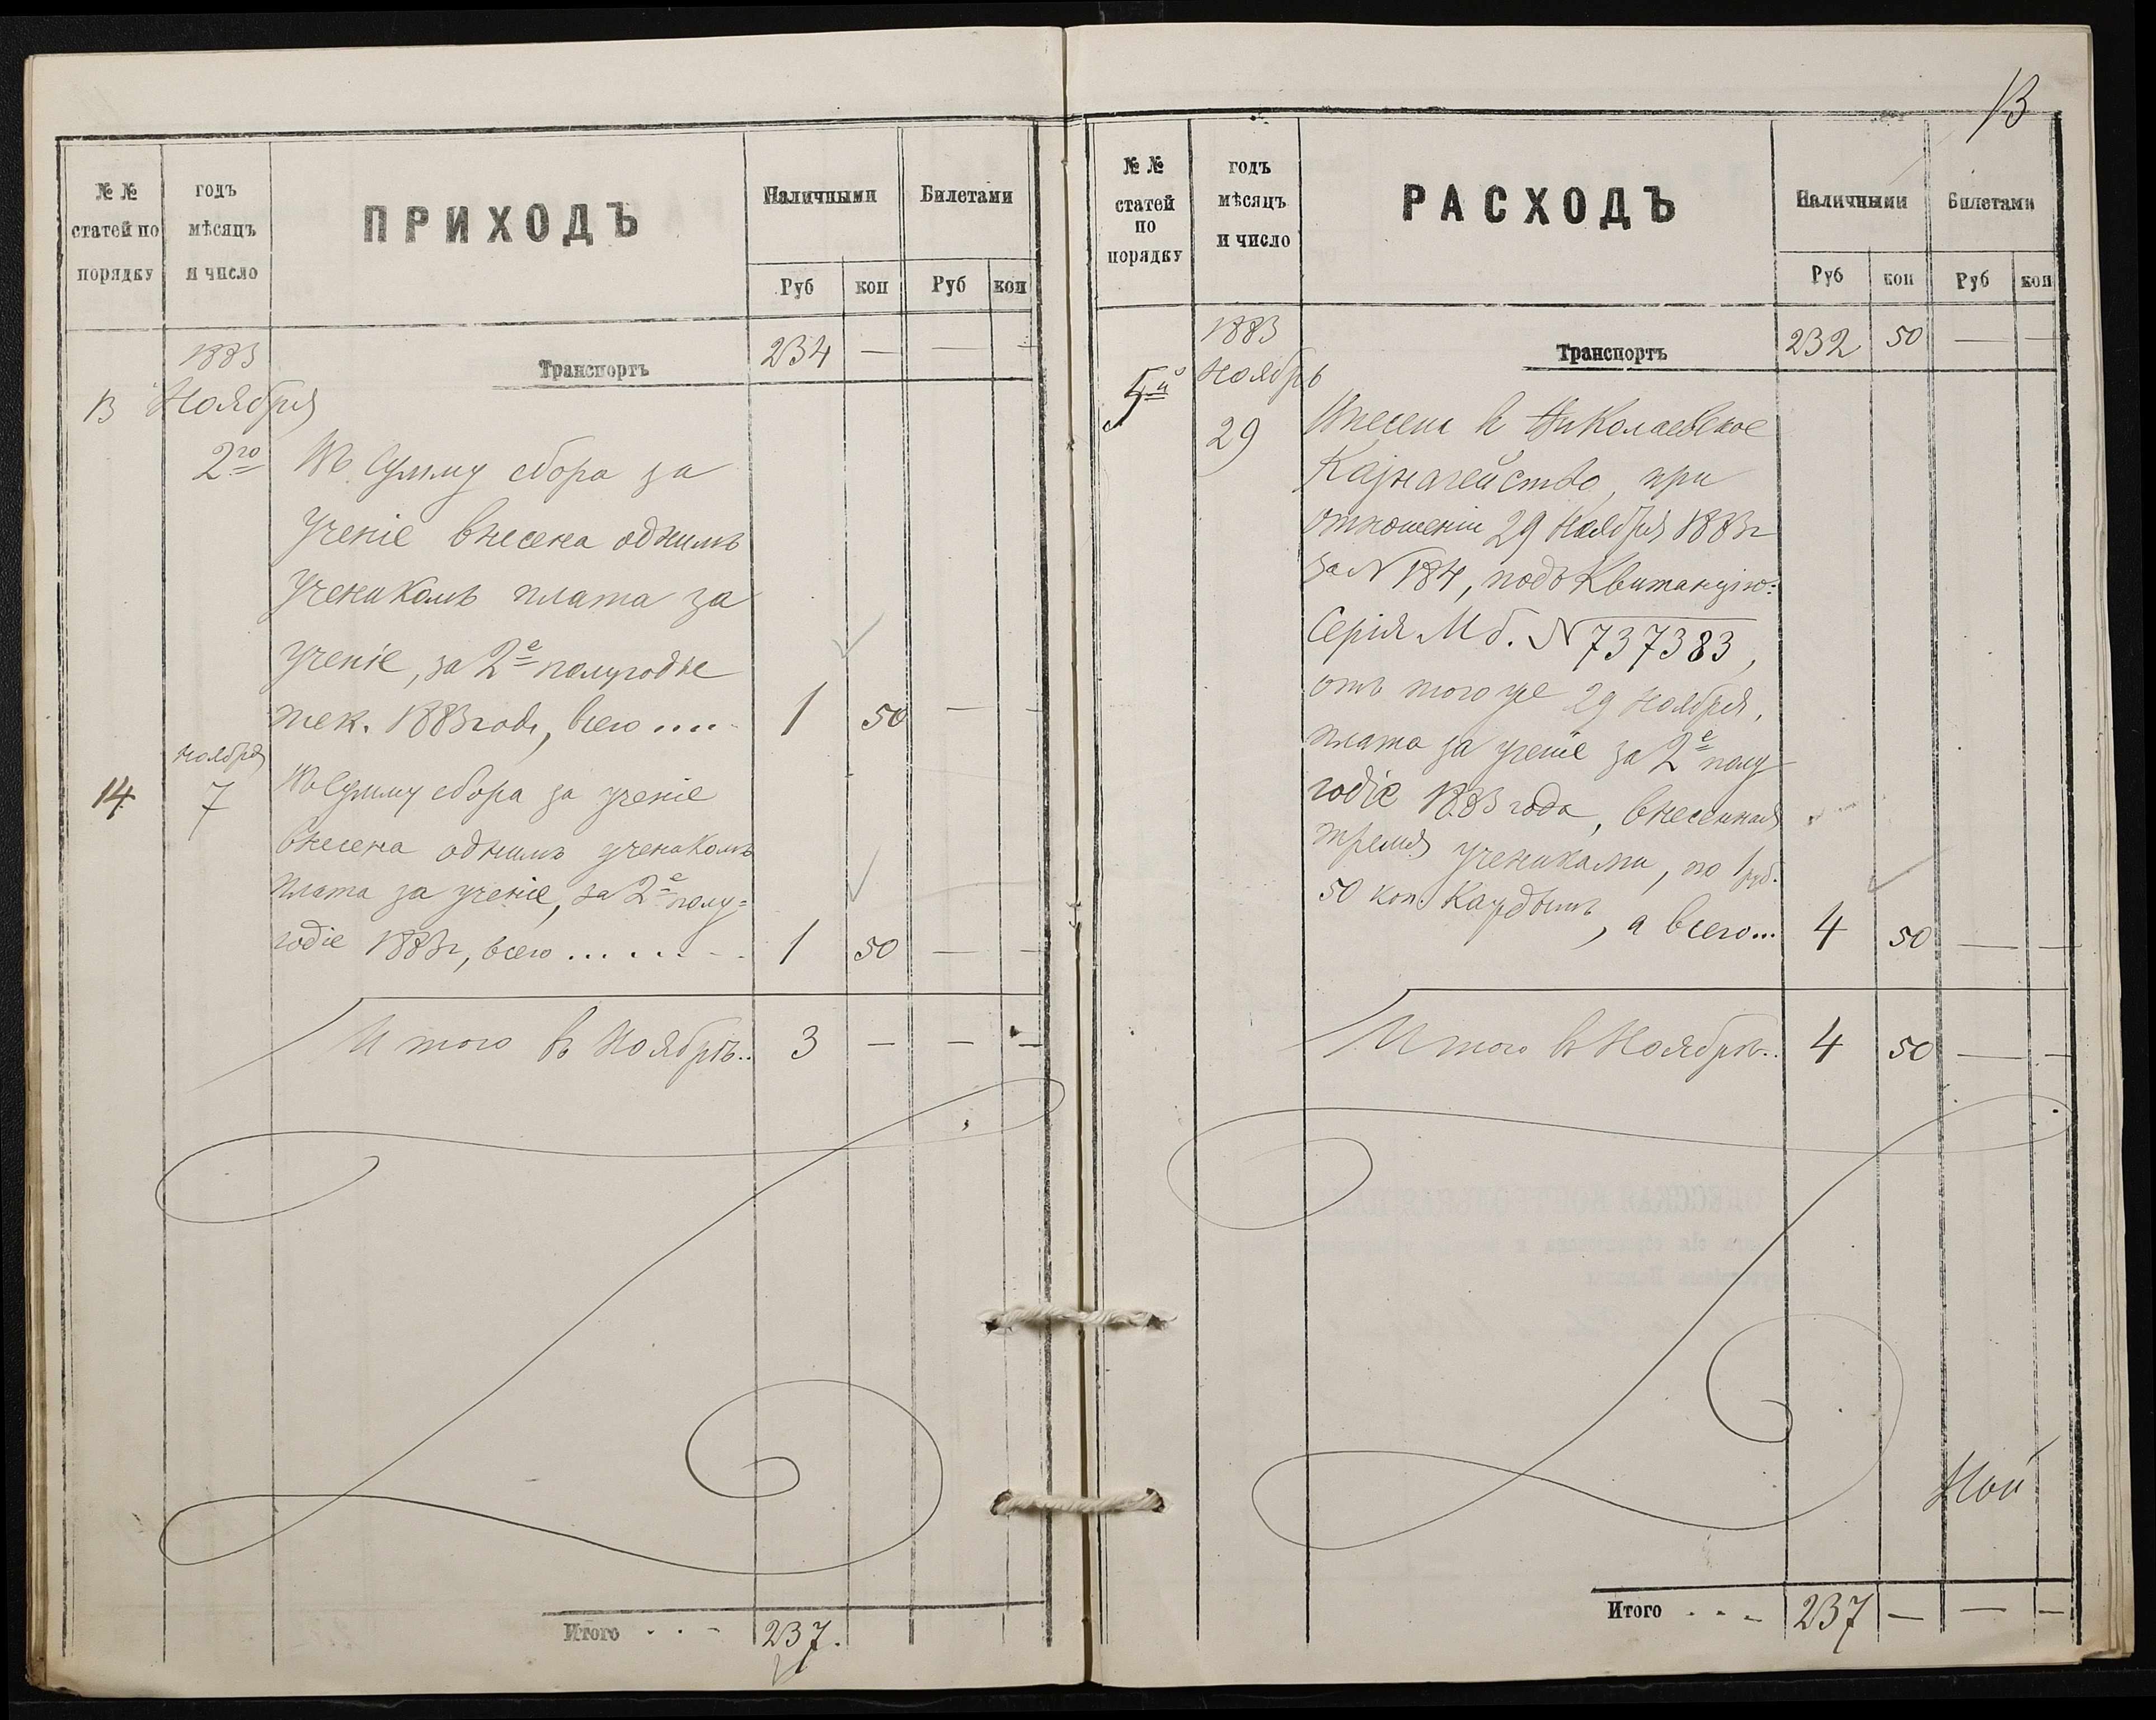 № №
статей по
порядку
годъ
мѣсяцъ
и число
ПРИХОДЪ
Наличными
Билетами
Руб
коп
Руб
коп
1883
Транспортъ
234 — — —
13 Ноября
2го Въ сумму сбора за
ученіе внесена однимъ
ученикомъ плата за
ученіе, за 2е полугодіе
тек. 1883 года, всего .... 1 50 — —
Ноября
14 7 Въ сумму сбора за ученіе
внесена однимъ ученикомъ
плата за ученіе, за 2е полу=
годіе 1883г, всего ....... 1 50 — —
Итого въ Ноябрѣ.. 3 — — —
Итого . . . 237.
13
№ №
статей
по
порядку
годъ
мѣсяцъ
и число
РАСХОДЪ
Наличными
Билетами
Руб
коп
Руб
коп
1883
Транспортъ
232 50 — —
5й Ноябрь
29 Внесена въ Николаевское
Казначейство, при
отношеніи 29 Ноября 1883г
за № 184, подъ Квитанцію:
Серія М б. № 737383,
отъ того же 29 Ноября,
плата за ученіе за 2е полу
годіе 1883 года, внесенная
тремя учениками, по 1 руб.
50 коп. каждымъ, а всего... 4 50 — —
Итого въ Ноябрѣ.. 4 50 — —
Итого . . . 237 — — —